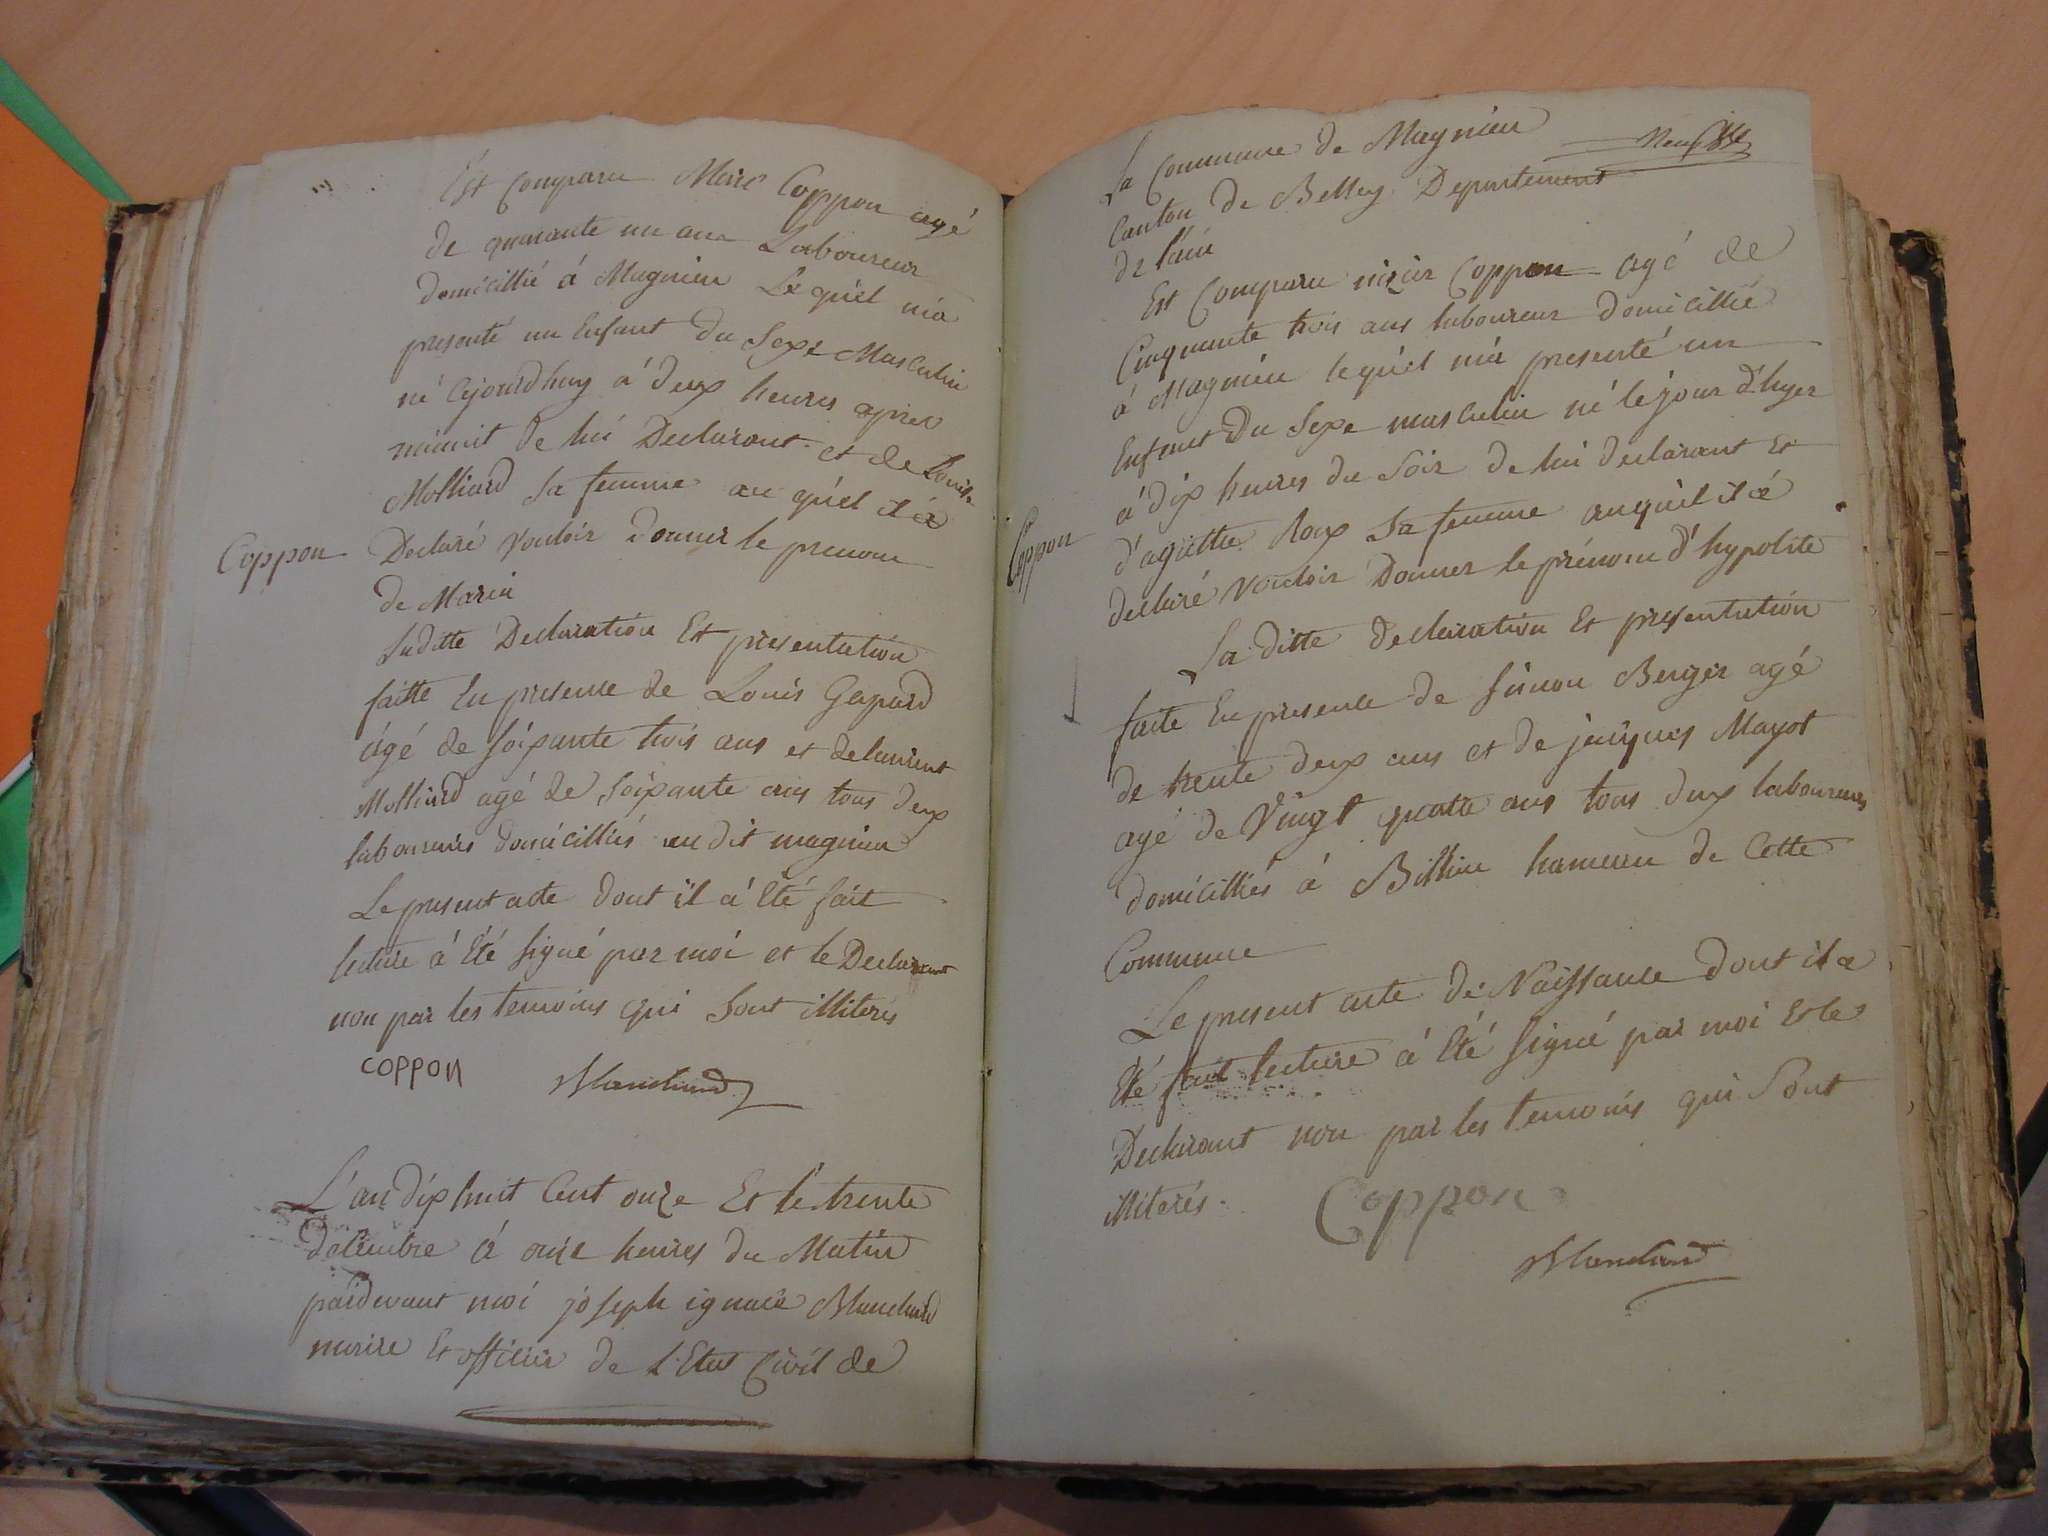 Est Comparu Marc Coppon agé
de quarante un ans Laboureur
domicillié á Magnieu Le quel m'a
presenté un Enfant du Sexe Masculin
né Cejourdhuy á deux heures apres
minuit de lui Declarant et de Louise
Molliard Sa femme au quel il á
Coppon Declaré vouloir donner le prenom
de Marin
Laditte Declaration Et presentation
faitte En presence de Louis Gaspard
ágé de soixante trois ans et de laurent
Molliard agé de soixante ans tous deux
laboureurs domicilliés au dit magnieu
Le present acte dont il á Eté fait
lecture á Eté signé par moi et le Declarant
non par les temoins qui Sont illiterés
COPPON Blanchard
L'an dix huit Cent onze Et le trente
decembre á onze heures du Matin
pardevant moi joseph ignace Blanchard
maire Et officier de l'Etat Civil de
La Commune de Magnieu
Canton de Belley Departement
de l'ain
Est Comparu Coppon agé de
Cinquante trois ans laboureur domicillié
á Magnieu lequel m'a presenté un
Enfant du Sexe masculin né le jour d'hyer
á dix heures du Soir de lui declarant Et
Coppon d'agathe Roux Sa femme auquel il á
declaré vouloir Donner le prénom d'hypolite
La ditte declaration Et presentation
faite En presence de simon Berger agé
de trente deux ans et de jacques Mayot
agé de Vingt quatre ans tous deux laboureurs
domicilliés á Billieu hameau de Cette
Commune
Le present acte de Naissance dont il a
Eté fait lecture á Eté signé par moi Et le
Declarant non par les temoins qui Sont
illiterés. Coppon
Blanchard